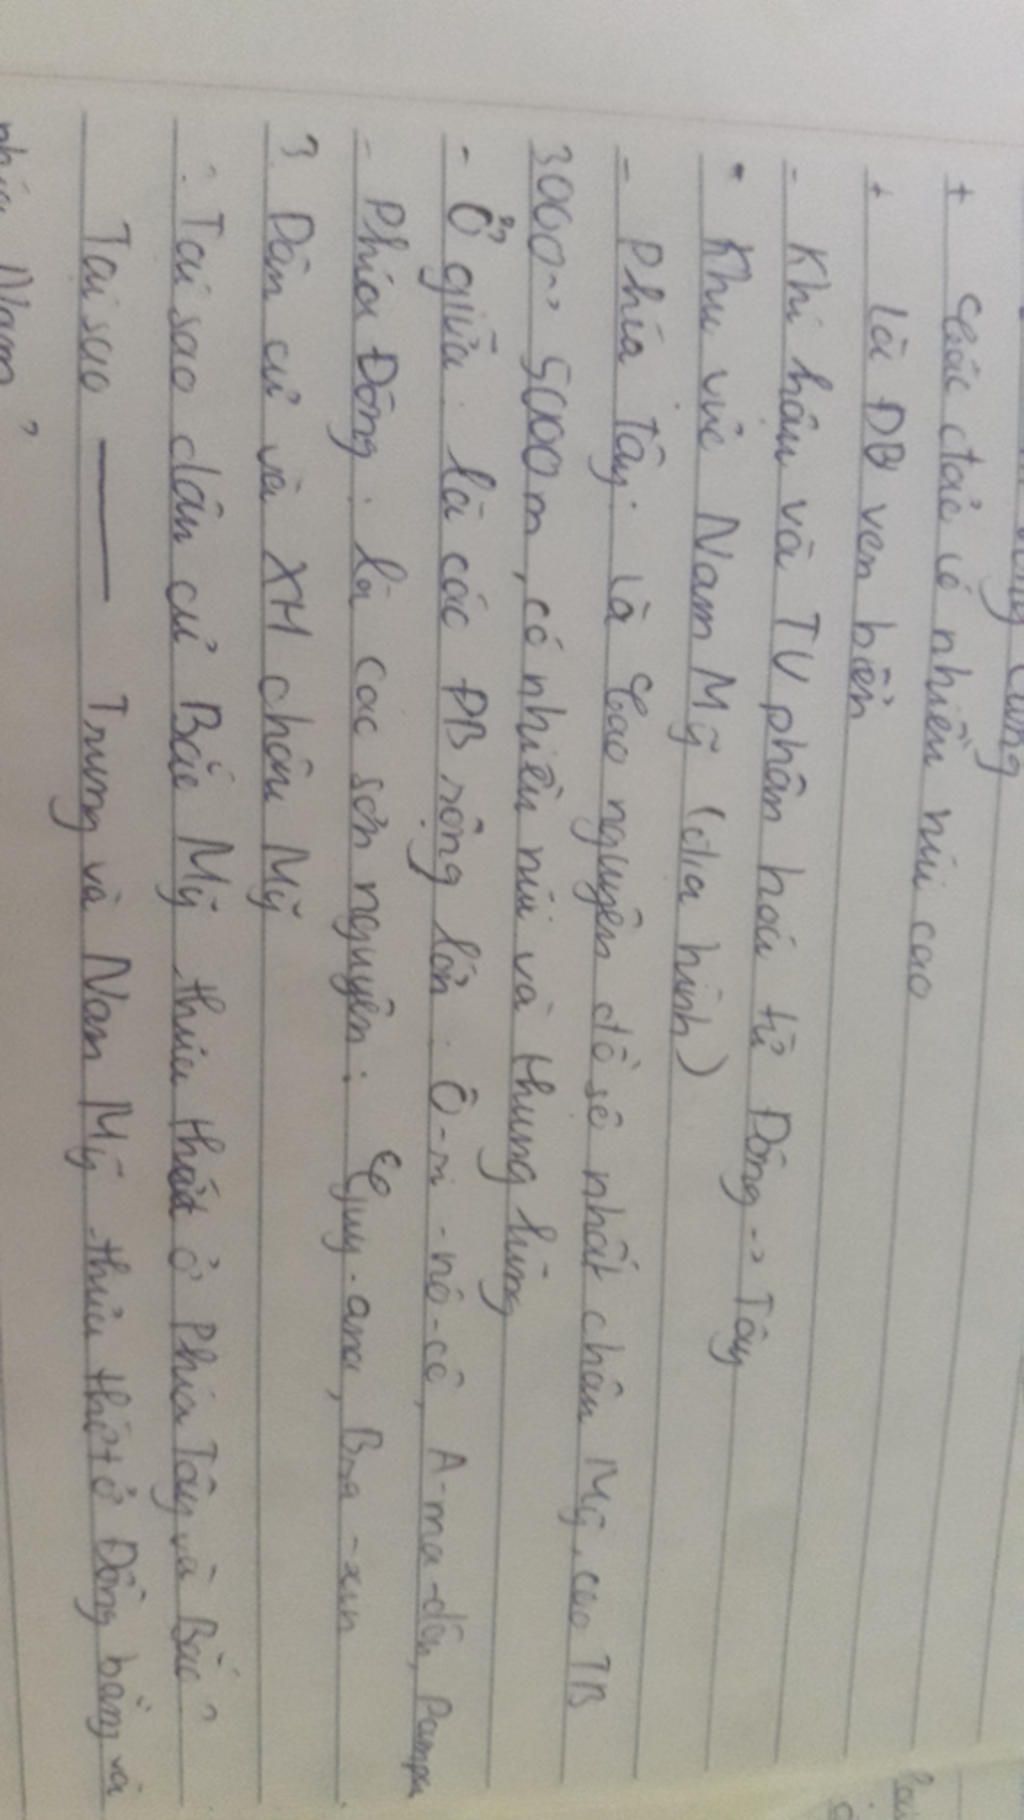 + Các đảo có nhiều núi cao
+ là ĐB ven biển
- Khí hậu và TV phân hoá từ Đông -> Tây
• Khu vực Nam Mỹ (địa hình)
- Phía Tây: là Cao nguyên đồ sộ nhất châu Mỹ, cao TB
3000 -> 5000m, có nhiều núi và thung lũng
- Ở giữa: là các ĐB rộng lớn: Ô-ri-nô-cô, A-ma-dôn, Pampa
- Phía Đông: là các sơn nguyên: Guy-ana, Bra-xin
3 Dân cư và XH châu Mỹ
: Tại sao dân cư Bắc Mỹ thưa thớt ở Phía Tây và Bắc?
Tại sao — Trung và Nam Mỹ thưa thớt ở Đồng bằng và
phía Nam?